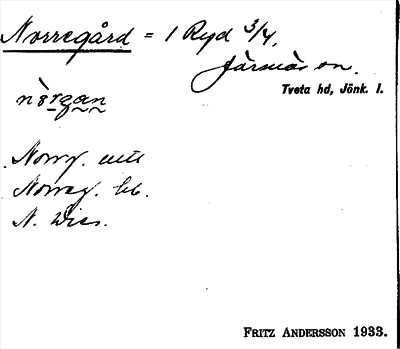 Norregård = 1 Ryd 3/4,
Järsnäs sn.
Tveta hd, Jönk. l.
nòrgan
Norrg.
Norreg. hb.
N.
FRITZ ANDERSSON 1933.